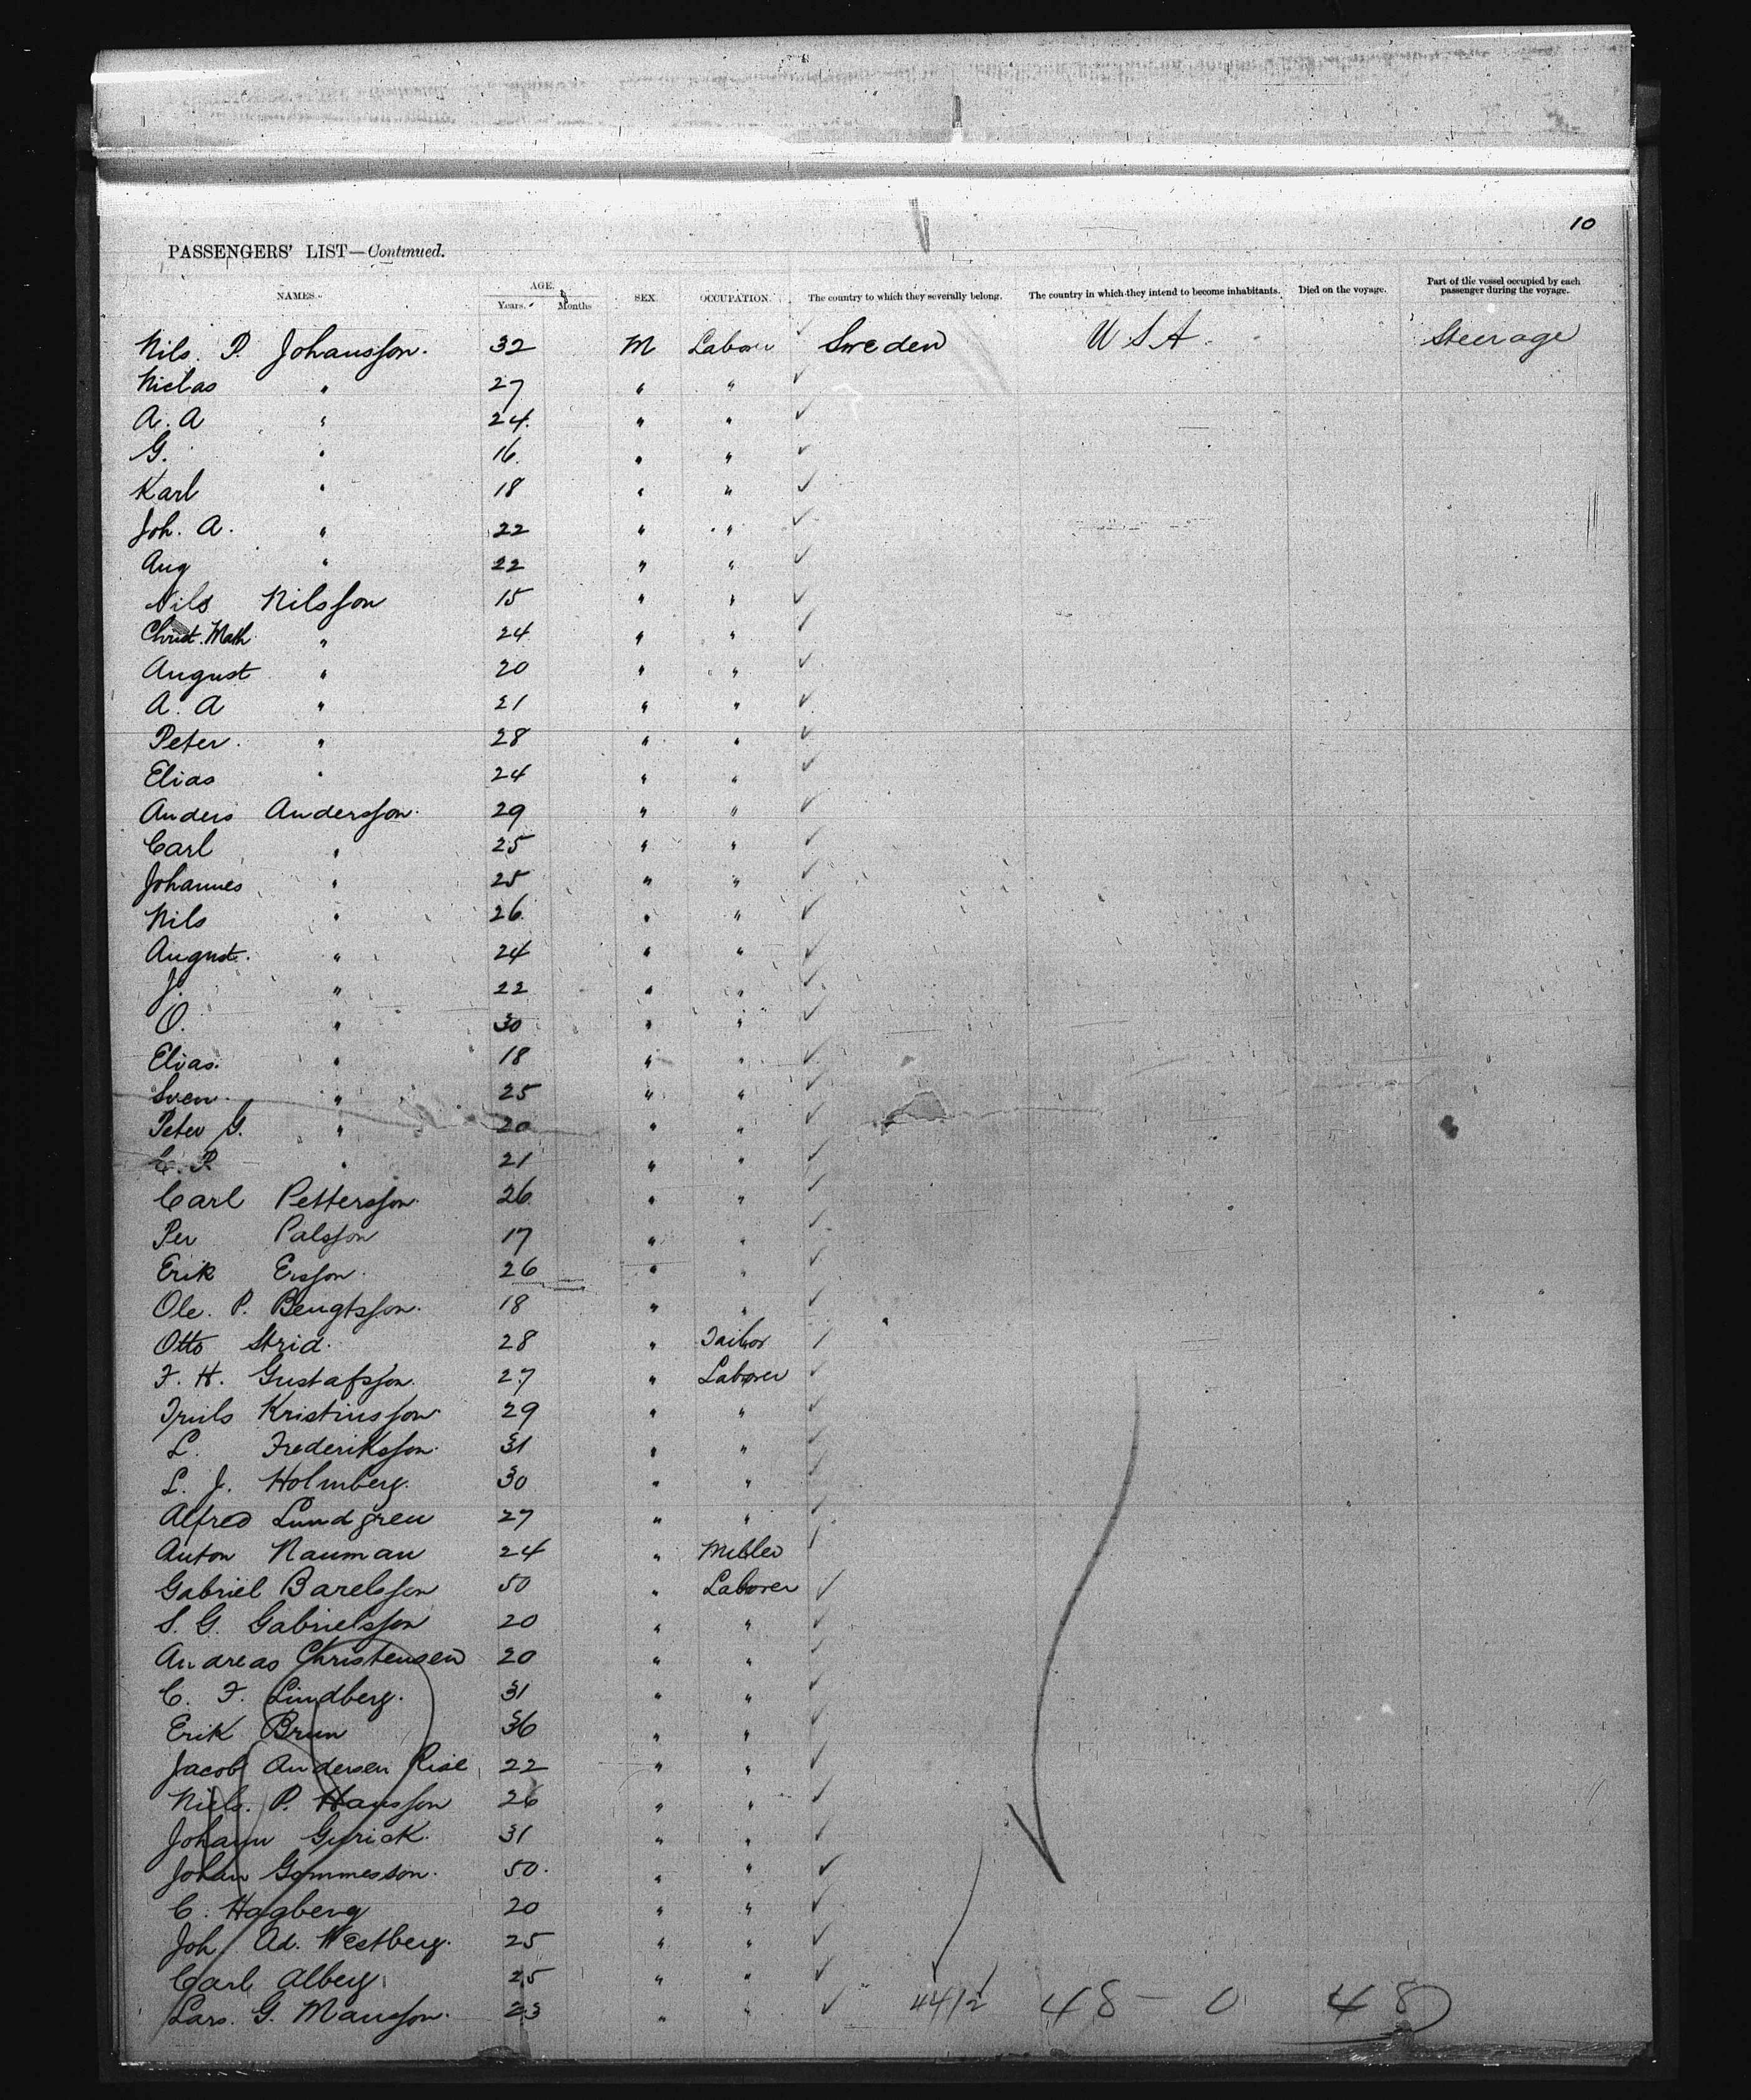 10
PASSENGERS' LIST—Continued.
NAMES. AGE. Years. Months SEX. OCCUPATION. The country to which they severally belong. The country in which they intend to become inhabitants. Died on the voyage. Part of the vessel occupied by each passenger during the voyage.
Nils. P. Johansson. 32 M Laborer Sweden U S A. Steerage
Niclas " 27 " "
A. A " 24. " "
G. " 16. " "
Karl " 18 " "
Joh. A. " 22 " "
Aug " 22 " "
Nils Nilsson 15 " "
Christ. Math " 24 " "
August " 20 " "
A. A " 21 " "
Peter. " 28 " "
Elias " 24 " "
Anders Andersson. 29 " "
Carl " 25 " "
Johannes " 25 " "
Nils " 26. " "
August. " 24 " "
J. " 22 " "
O. " 30 " "
Elias. " 18 " "
Sven. " 25 " "
Peter G. " 20 " "
C. P. " 21 " "
Carl Pettersson. 26. " "
Per Palsson 17 " "
Erik Ersson. 26 " "
Ole. P. Bengtsson. 18 " "
Otto Strid. 28 " Tailor
F. H. Gustafsson. 27 " Laborer
Truls Kristinsson 29 " "
L. Frederiksson. 31 " "
L. J. Holmberg. 30 " "
Alfred Lundgren 27 " "
Anton Nauman 24 " Miller
Gabriel Barelsson 50 " Laborer
S. G. Gabrielsson 20 " "
Andreas Christensen 20 " "
C. F. Lindberg. 31 " "
Erik Brun 36 " "
Jacob Andersen Rise 22 " "
Niels. P. Hansson 26 " "
Johann Gyrick. 31 " "
Johan Gommesson. 50. " "
C. Hagberg 20 " "
Joh. Ad. Westberg. 25 " "
Carl Alberg 25 " "
Lars. G. Mansson. 23 " " 44/2 48 - 0 48